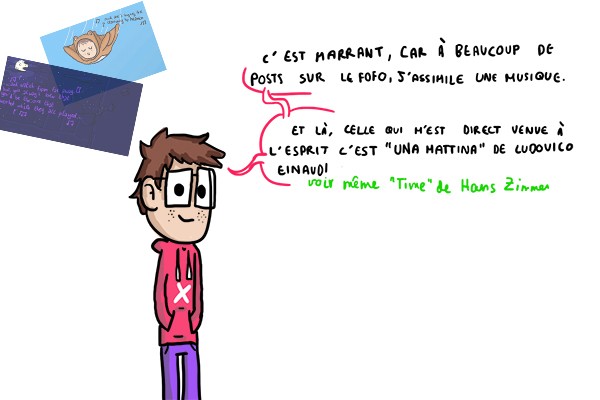 C'EST MARRANT, CAR À BEAUCOUP DE
POSTS SUR LE FOFO, J'ASSIMILE UNE MUSIQUE.
ET LÀ, CELLE QUI M'EST DIRECT VENUE À
L'ESPRIT C'EST "UNA MATTINA" DE LUDOVICO
EINAUDI
voir même "Time" de Hans Zimmer